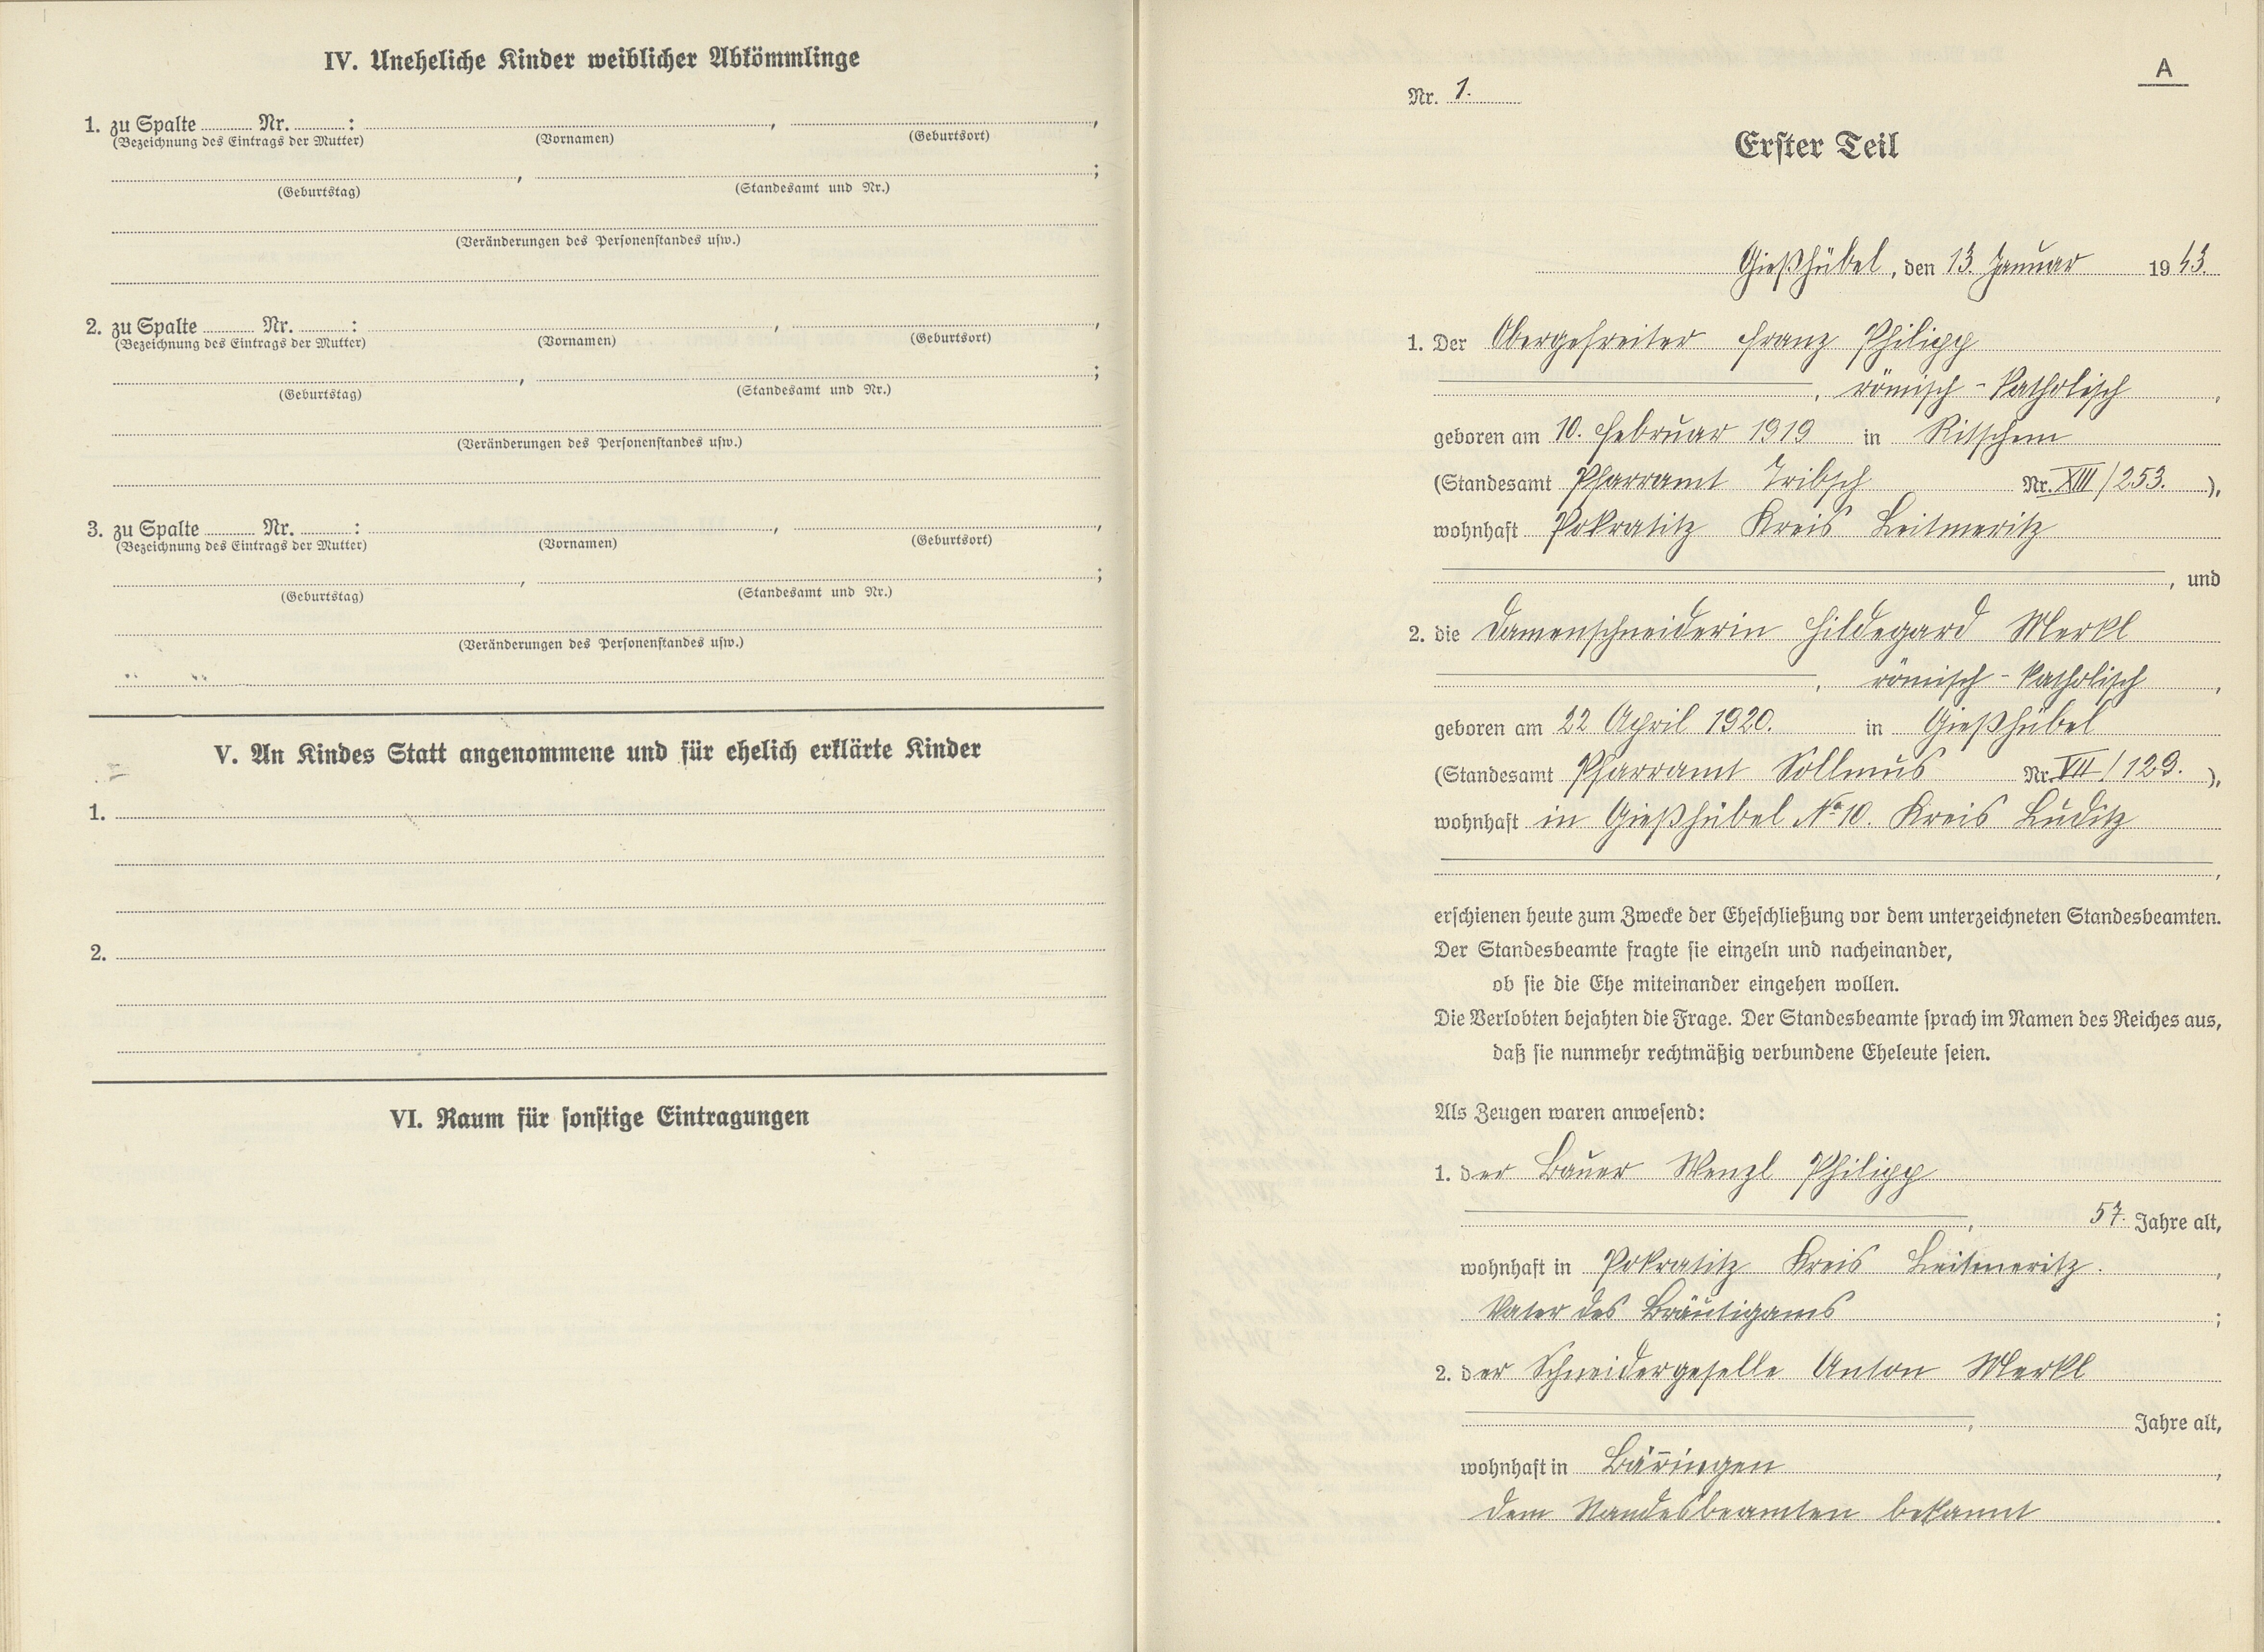 IV. Uneheliche Kinder weiblicher Abkömmlinge
1. zu Spalte ........ Nr. ........ : ........ , ........ ,
(Bezeichnung des Eintrags der Mutter) (Vornamen) (Geburtsort)
........ , ........ ;
(Geburtstag) (Standesamt und Nr.)
(Veränderungen des Personenstandes usw.)
2. zu Spalte ........ Nr. ........ : ........ , ........ ,
(Bezeichnung des Eintrags der Mutter) (Vornamen) (Geburtsort)
........ , ........ ;
(Geburtstag) (Standesamt und Nr.)
(Veränderungen des Personenstandes usw.)
3. zu Spalte ........ Nr. ........ : ........ , ........ ,
(Bezeichnung des Eintrags der Mutter) (Vornamen) (Geburtsort)
........ , ........ ;
(Geburtstag) (Standesamt und Nr.)
(Veränderungen des Personenstandes usw.)
V. An Kindes Statt angenommene und für ehelich erklärte Kinder
1.
2.
VI. Raum für sonstige Eintragungen
A
Nr. 1.
Erster Teil
Gießhübel, den 13. Januar 1943.
1. Der Obergefreiter Franz Philipp
, römisch-katholisch ,
geboren am 10. Februar 1919 in Ritschen
(Standesamt Pfarramt Tribsch Nr. XIII/253. ),
wohnhaft Pokratitz Kreis Leitmeritz
, und
2. die Damenschneiderin Hildegard Merkl
, römisch-katholisch ,
geboren am 22 April 1920. in Gießhübel
(Standesamt Pfarramt Sollmus Nr. VII/129. ),
wohnhaft in Gießhübel No 10. Kreis Luditz
,
erschienen heute zum Zwecke der Eheschließung vor dem unterzeichneten Standesbeamten.
Der Standesbeamte fragte sie einzeln und nacheinander,
ob sie die Ehe miteinander eingehen wollen.
Die Verlobten bejahten die Frage. Der Standesbeamte sprach im Namen des Reiches aus,
daß sie nunmehr rechtmäßig verbundene Eheleute seien.
Als Zeugen waren anwesend:
1. der Bauer Wenzl Philipp
, 57. Jahre alt,
wohnhaft in Pokratitz Kreis Leitmeritz. ,
Vater des Bräutigams ;
2. der Schneidergeselle Anton Merkl
, Jahre alt,
wohnhaft in Bärringen ,
dem Standesbeamten bekannt .